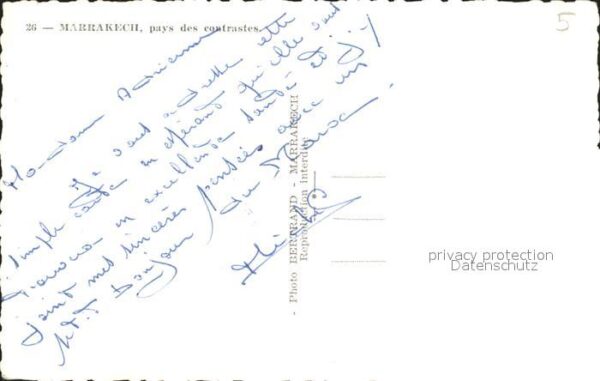 26 — MARRAKECH, pays des contrastes.
5
Madame Adrienne
Je vous adresse cette
simple carte en espérant qu'elle vous
en excellente santé et j'y
joint mes sincères pensées avec un
Bonjour du Maroc.
- Photo BERTRAND - MARRAKECH
Reproduction interdite
privacy protection
Datenschutz